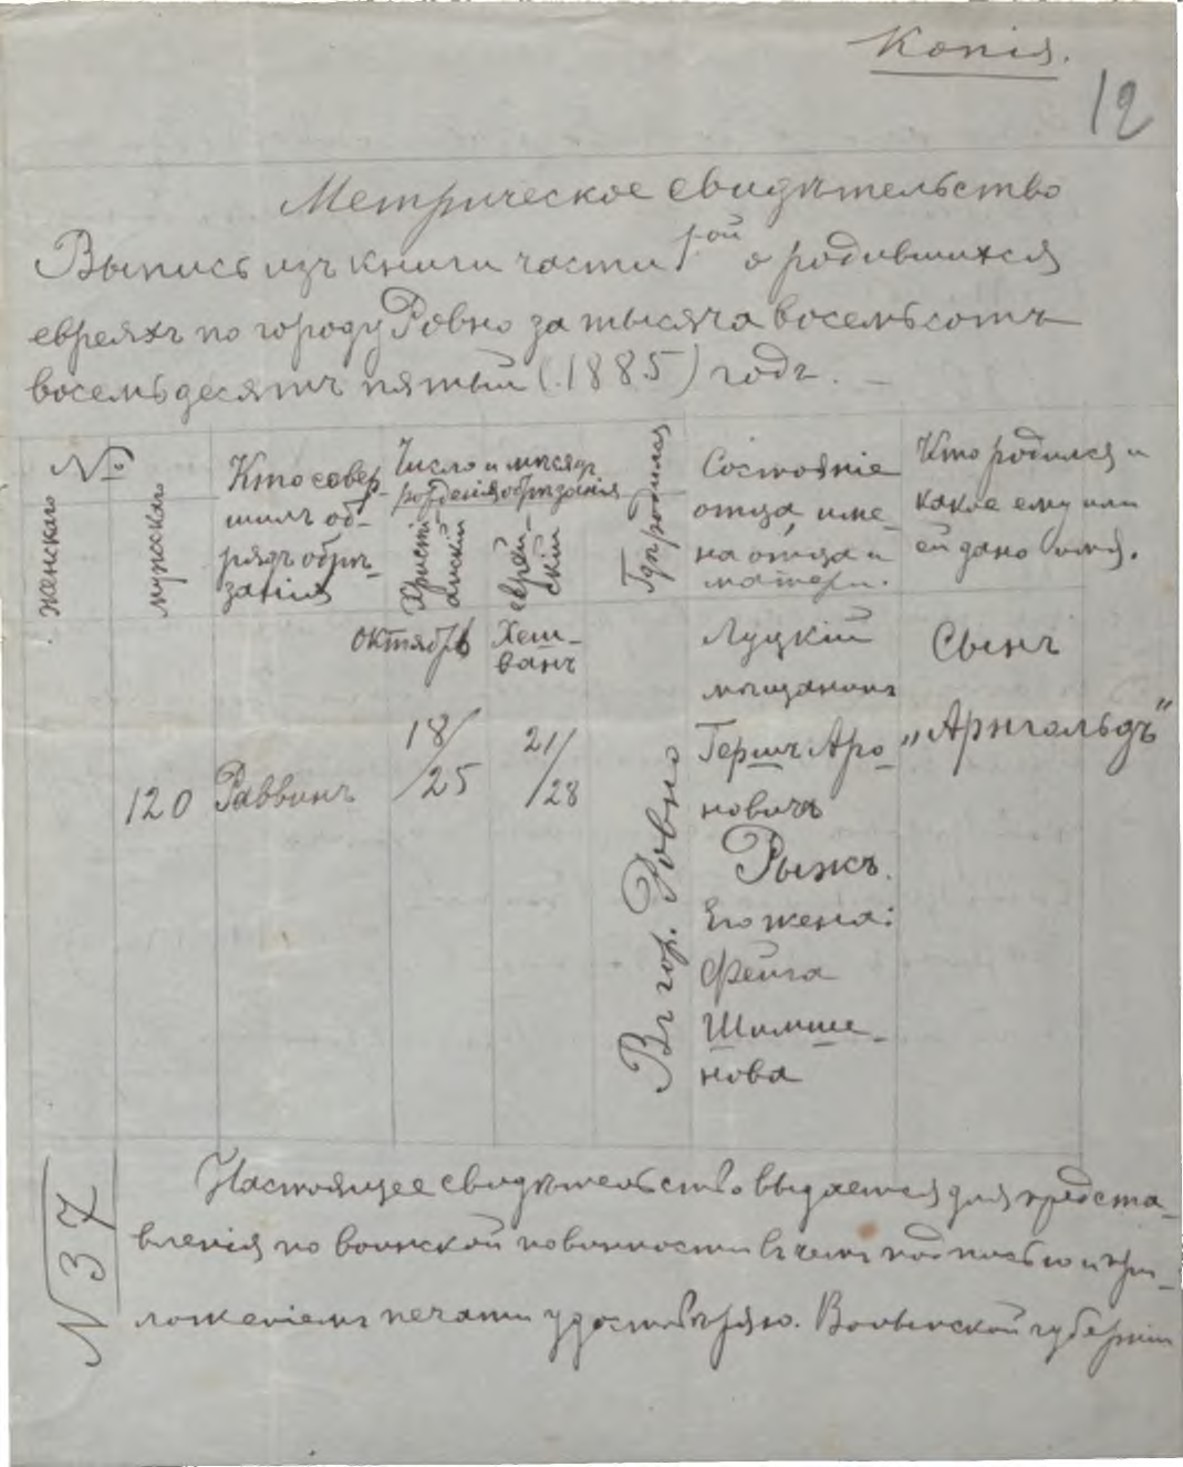 Копія.
12
Метрическое свидѣтельство
Выпись изъ книги части 1-ой о родившихся
евреяхъ по городу Ровно за тысяча восемьсотъ
восемьдесятъ пятый (1885) годъ. —
№
женскаго
мужскаго
Кто совер-
шилъ об-
рядъ обрѣ-
занія
Число и мѣсяцъ
рожденія обрѣзанія
Христі-
анскій
еврей-
скій
Гдѣ родился
Состояніе
отца, име-
на отца и
матери.
Кто родился и
какое ему или
ей дано имя.
октябрь
Хеш-
ванъ
120
Раввинъ
18/
/25
21/
/28
Въ гор. Ровно
Луцкій
мѣщанинъ
Гершъ Аро-
новичъ
Рыжъ.
Его жена:
Фейга
Шимше-
нова
Сынъ
„Арнгольдъ"
№ 37
Настоящее свидѣтельство выдается для предста-
вленія по воинской повинности въ чемъ подписью и при-
ложеніемъ печати удостовѣряю. Волынской губерніи